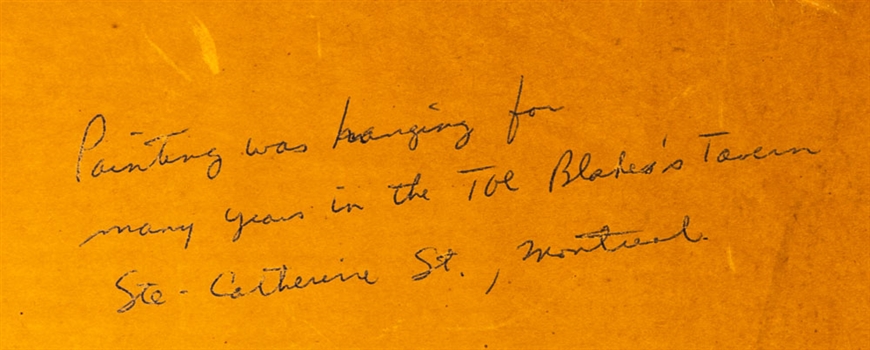 Painting was hanging for
many years in the Toe Blake's Tavern
Ste-Catherine St., Montreal.